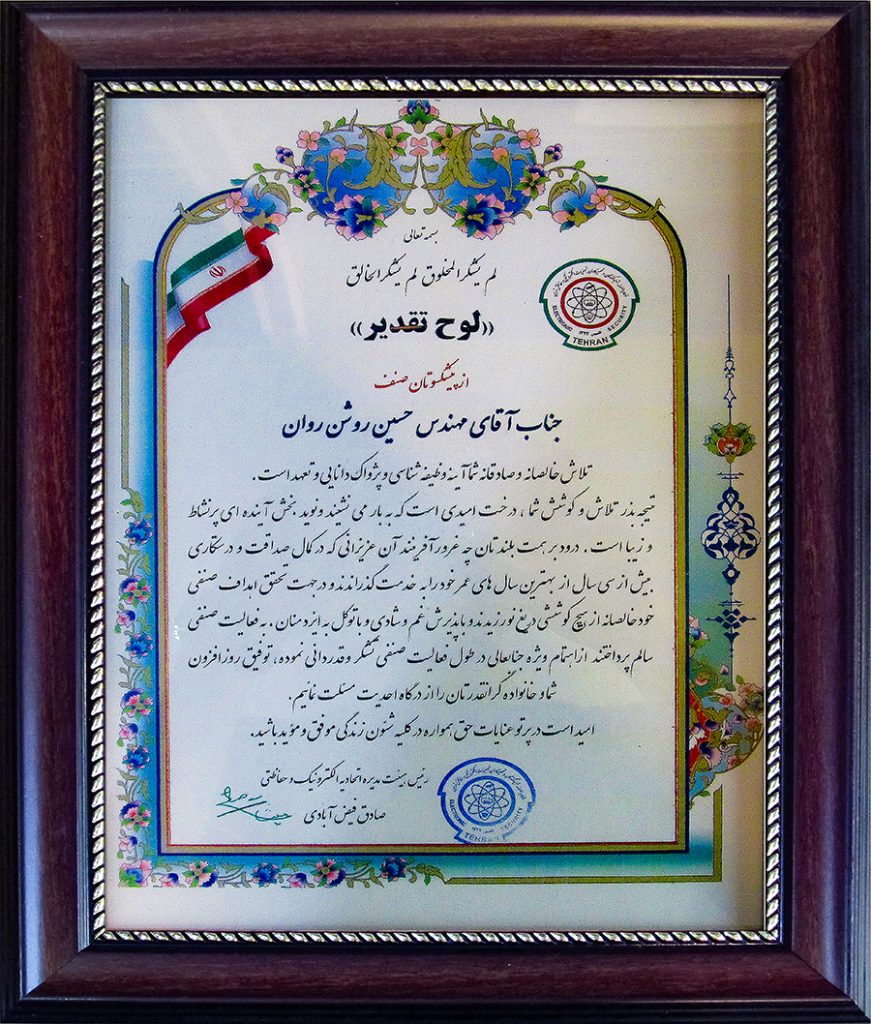 بسمه تعالی
لم یشکر المخلوق لم یشکر الخالق
ELECTRONIC SECURITY
TEHRAN
((لوح تقدیر))
از پیشکسوتان صنف
جناب آقای مهندس حسین روشن روان
تلاش خالصانه و صادقانه شما آینه وظیفه شناسی و پژواک دانایی و تعهد است .
نتیجه بذر تلاش و کوشش شما ، درخت امیدی است که به بار می نشیند و نوید بخش آینده ای پرنشاط
و زیبا است . درود بر همت بلندتان چه غرورآفرینند آن عزیزانی که در کمال صداقت و درستکاری
بیش از سی سال از بهترین سال های عمر خود را به خدمت گذراندند و در جهت تحقق اهداف صنفی
خود خالصانه از هیچ کوششی دریغ نورزیدند و با پذیرش غم و شادی و با توکل به ایزد منان ، به فعالیت صنفی
سالم پرداختند از اهتمام ویژه جنابعالی در طول فعالیت صنفی تشکر و قدردانی نموده ، توفیق روزافزون
شما و خانواده گرانقدرتان را از درگاه احدیت مسئلت نمائیم.
امید است در پرتو عنایات حق همواره در کلیه شئون زندگی موفق و مؤید باشید.
رئیس هیئت مدیره اتحادیه الکترونیک و حفاظتی
صادق فیض آبادی
ELECTRONIC SECURITY
TEHRAN